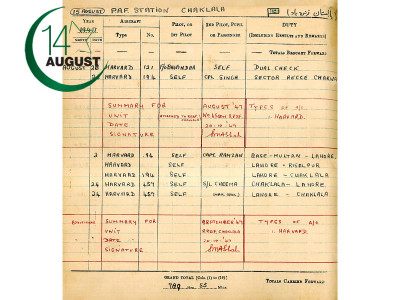 15 AUGUST
P.A.F. STATION CHAKLALA
14
AUGUST
YEAR
1947
AIRCRAFT
Type
No.
PILOT, OR
1ST PILOT
2ND PILOT, PUPIL
OR PASSENGER
DUTY
(INCLUDING RESULTS AND REMARKS)
TOTALS BROUGHT FORWARD
AUGUST 20 HARVARD SELF DUAL CHECK
HARVARD 194 SELF CPL SINGH SECTOR RECCE CHAKLALA
SUMMARY FOR AUGUST '47 TYPES OF A/C
UNIT 1. HARVARD.
DATE 20-10-47
SIGNATURE
3 HARVARD 194 SELF CAPT. RAMZAN BASE-MULTAN-LAHORE.
HARVARD SELF LAHORE-RISALPUR
HARVARD 194 SELF LAHORE-CHAKLALA
24 HARVARD 457 SELF S/L CHEEMA CHAKLALA-LAHORE.
24 HARVARD 457 SELF LAHORE-CHAKLALA
SUMMARY FOR SEPTEMBER '47 TYPES OF A/C
UNIT CHAKLALA 1. HARVARD
DATE 20-10-47
SIGNATURE
GRAND TOTAL [Cols. (1) to (10)]
789 Hrs. 25 Mins.
TOTALS CARRIED FORWARD